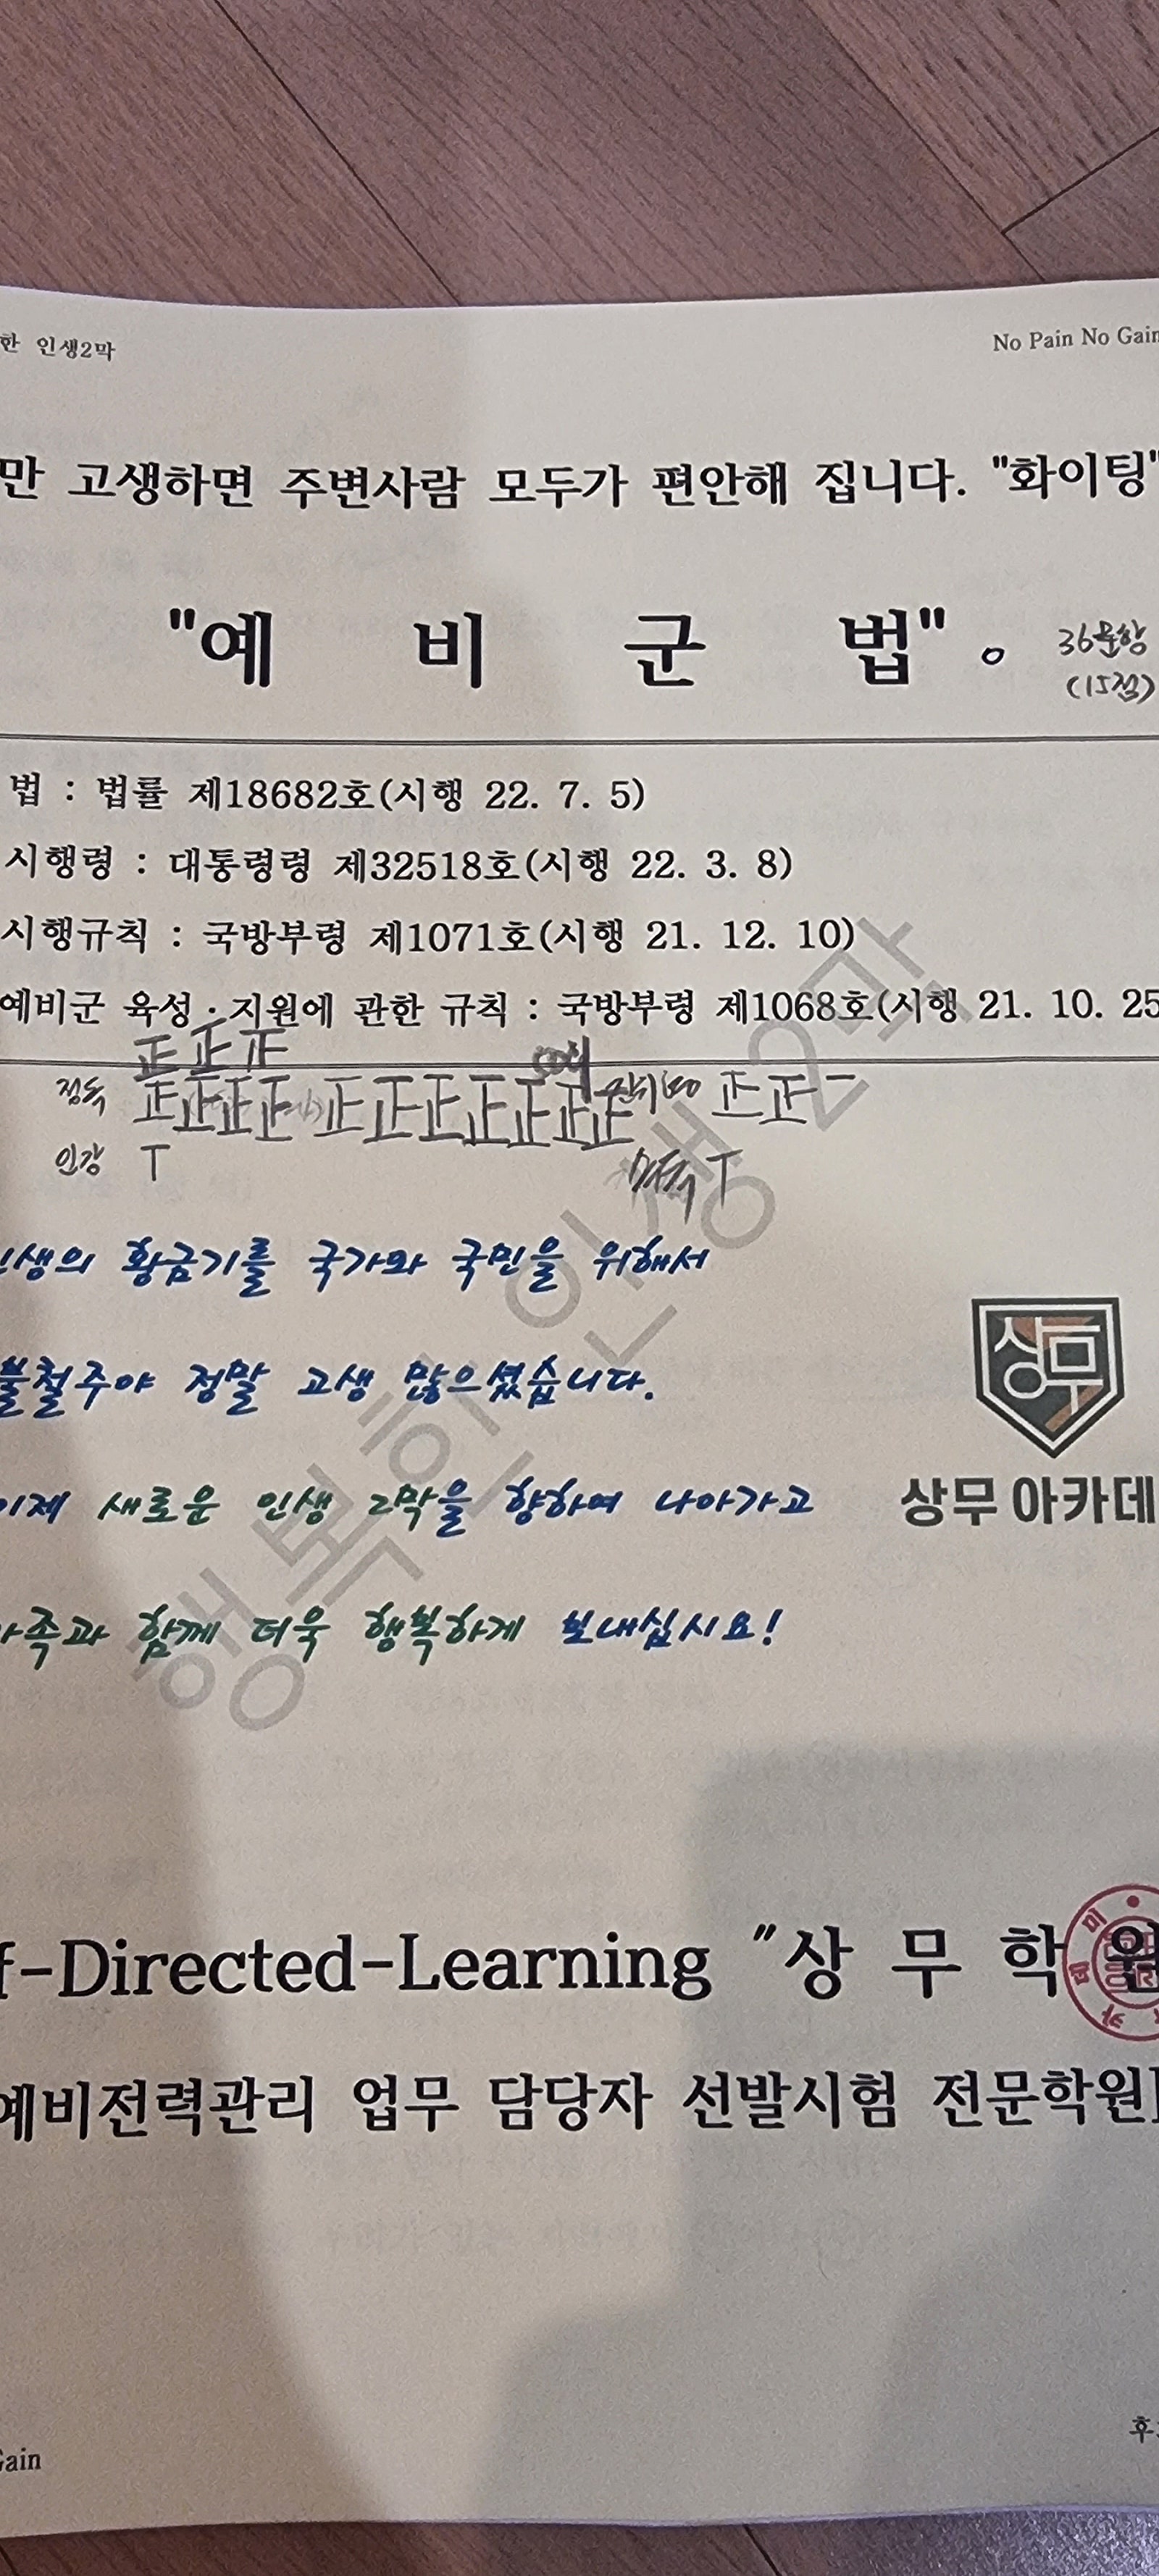 한 인생2막
No Pain No Gain
만 고생하면 주변사람 모두가 편안해 집니다. "화이팅"
"예 비 군 법"。 36문항
(15점)
법 : 법률 제18682호(시행 22. 7. 5)
시행령 : 대통령령 제32518호(시행 22. 3. 8)
시행규칙 : 국방부령 제1071호(시행 21. 12. 10)
예비군 육성·지원에 관한 규칙 : 국방부령 제1068호(시행 21. 10. 25
正 正 正
정독 正正正正 正正正正正正正 正正一
인강 T
T
인생의 황금기를 국가와 국민을 위해서
불철주야 정말 고생 많으셨습니다.
이제 새로운 인생 2막을 향하여 나아가고
가족과 함께 더욱 행복하게 보내십시요!
행복한 인생2막
상무
상무 아카데
f-Directed-Learning "상 무 학 원
예비전력관리 업무 담당자 선발시험 전문학원]
Gain